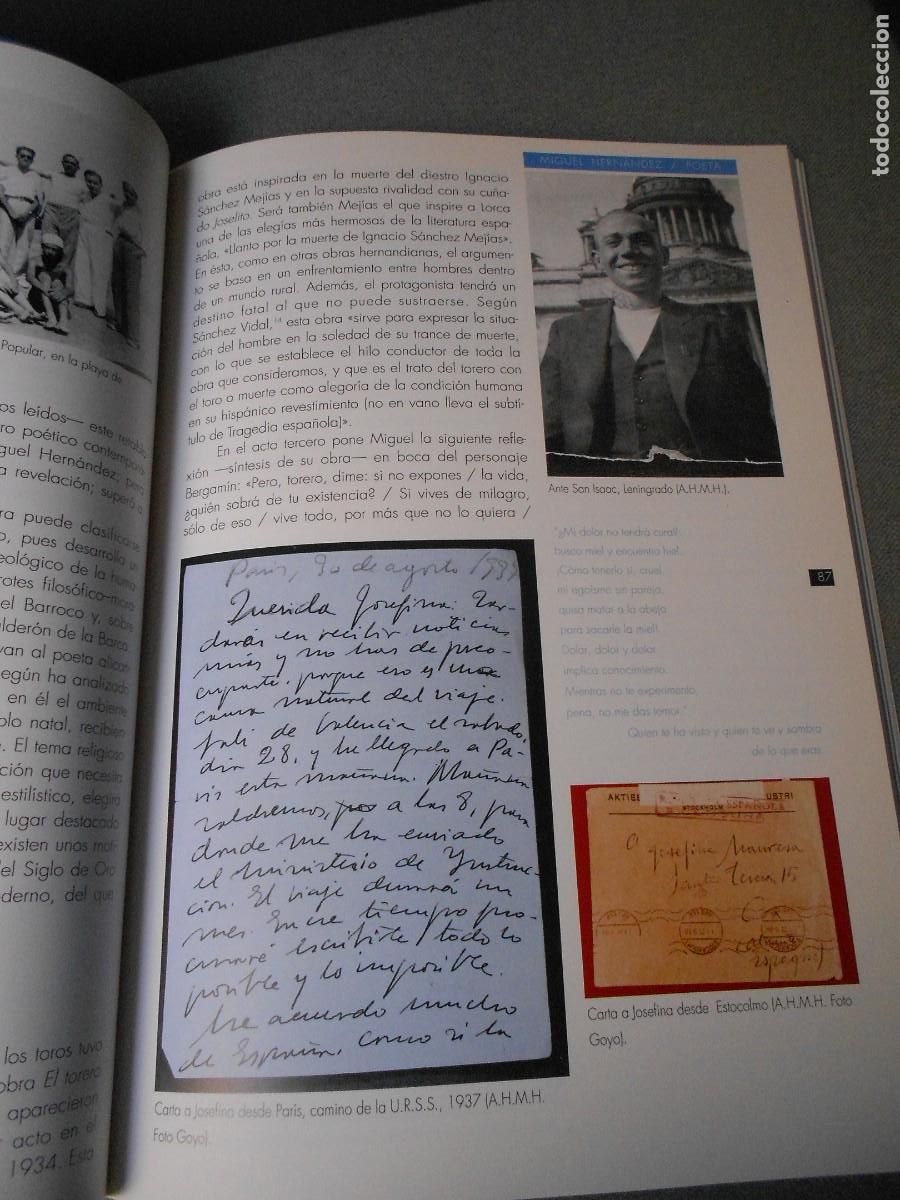 todocoleccion
Popular, en la playa de
os leídos— este retablo
ro poético contempo
guel Hernández; pero
a revelación; superó a
ra puede clasificarse
o, pues desarrolla un
eológico de la huma
rotes filosófico-mora
el Barroco y, sobre
alderón de la Barca
van al poeta alican
egún ha analizado
en él el ambiente
olo natal, reciben
e. El tema religioso
ción que necesita
estilístico, elegirá
lugar destacado
existen unos moti
del Siglo de Oro
oderno, del que
los toros tuvo
obra El torero
aparecieron
r acto en el
1934. Esta
obra está inspirada en la muerte del diestro Ignacio
Sánchez Mejías y en la supuesta rivalidad con su cuña-
do Joselito. Será también Mejías el que inspire a Lorca
una de las elegías más hermosas de la literatura espa-
ñola, «Llanto por la muerte de Ignacio Sánchez Mejías».
En ésta, como en otras obras hernandianas, el argumen-
to se basa en un enfrentamiento entre hombres dentro
de un mundo rural. Además, el protagonista tendrá un
destino fatal al que no puede sustraerse. Según
Sánchez Vidal, esta obra «sirve para expresar la situa-
ción del hombre en la soledad de su trance de muerte,
con lo que se establece el hilo conductor de toda la
obra que consideramos, y que es el trato del torero con
el toro a muerte como alegoría de la condición humana
en su hispánico revestimiento (no en vano lleva el subtí-
tulo de Tragedia española)».
En el acto tercero pone Miguel la siguiente refle-
xión —síntesis de su obra— en boca del personaje
Bergamín: «Pero, torero, dime: si no expones / la vida,
¿quién sabrá de tu existencia? / Si vives de milagro,
sólo de eso / vive todo, por más que no lo quiera /
París, 30 de agosto 1937
Querida Josefina: Tar-
darás en recibir noticias
mías y no has de preo-
cuparte, porque eso es
cosa natural del viaje.
Salí de Valencia el sábado,
día 28, y he llegado a Pa-
rís esta mañana. Mañana
saldremos, a las 8, para
donde me ha enviado
el ministerio de Instruc-
ción. El viaje durará un
mes. En ese tiempo pro-
curaré escribirte todo lo
posible y lo imposible.
Me acuerdo mucho
de España, como si la
Carta a Josefina desde París, camino de la U.R.S.S., 1937 (A.H.M.H.
Foto Goyo).
MIGUEL HERNÁNDEZ / POETA
Ante San Isaac, Leningrado (A.H.M.H.).
"¿Mi dolor no tendrá cura?:
busco miel y encuentro hiel.
¡Cómo tenerlo sí, cruel,
mi egoísmo sin pareja,
quise matar a la abeja
para sacarle la miel!
Dolor, dolor y dolor
implica conocimiento.
Mientras no te experimento,
pena, no me das temor."
Quien te ha visto y quien te ve y sombra
de lo que eras.
87
AKTIEB
USTRI
STOCKHOLM
ESPAÑOLA
Josefina Manresa
Santa Teresa 15
Carta a Josefina desde Estocolmo (A.H.M.H. Foto
Goyo).